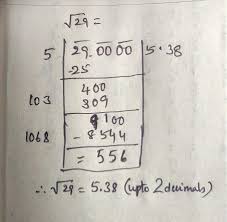 √29 =
5 29.0000 5.38
-25
400
103 309
9100
1068 - 8544
= 556
∴ √29 = 5.38 (upto 2 decimals)